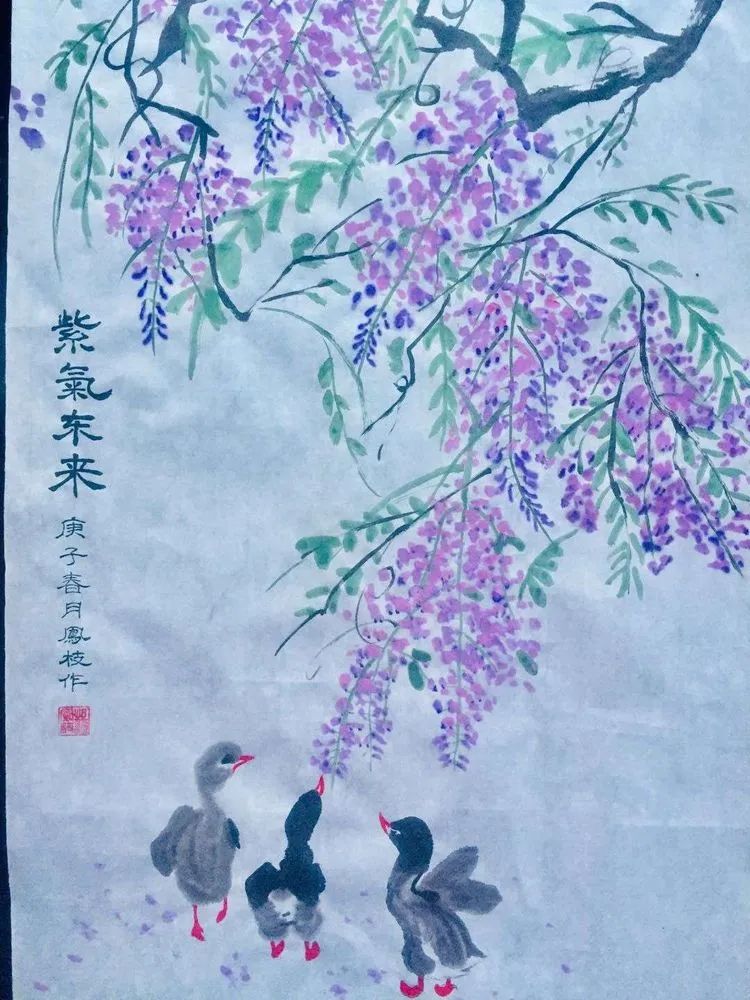 紫氣东来
庚子春月鳳枝作